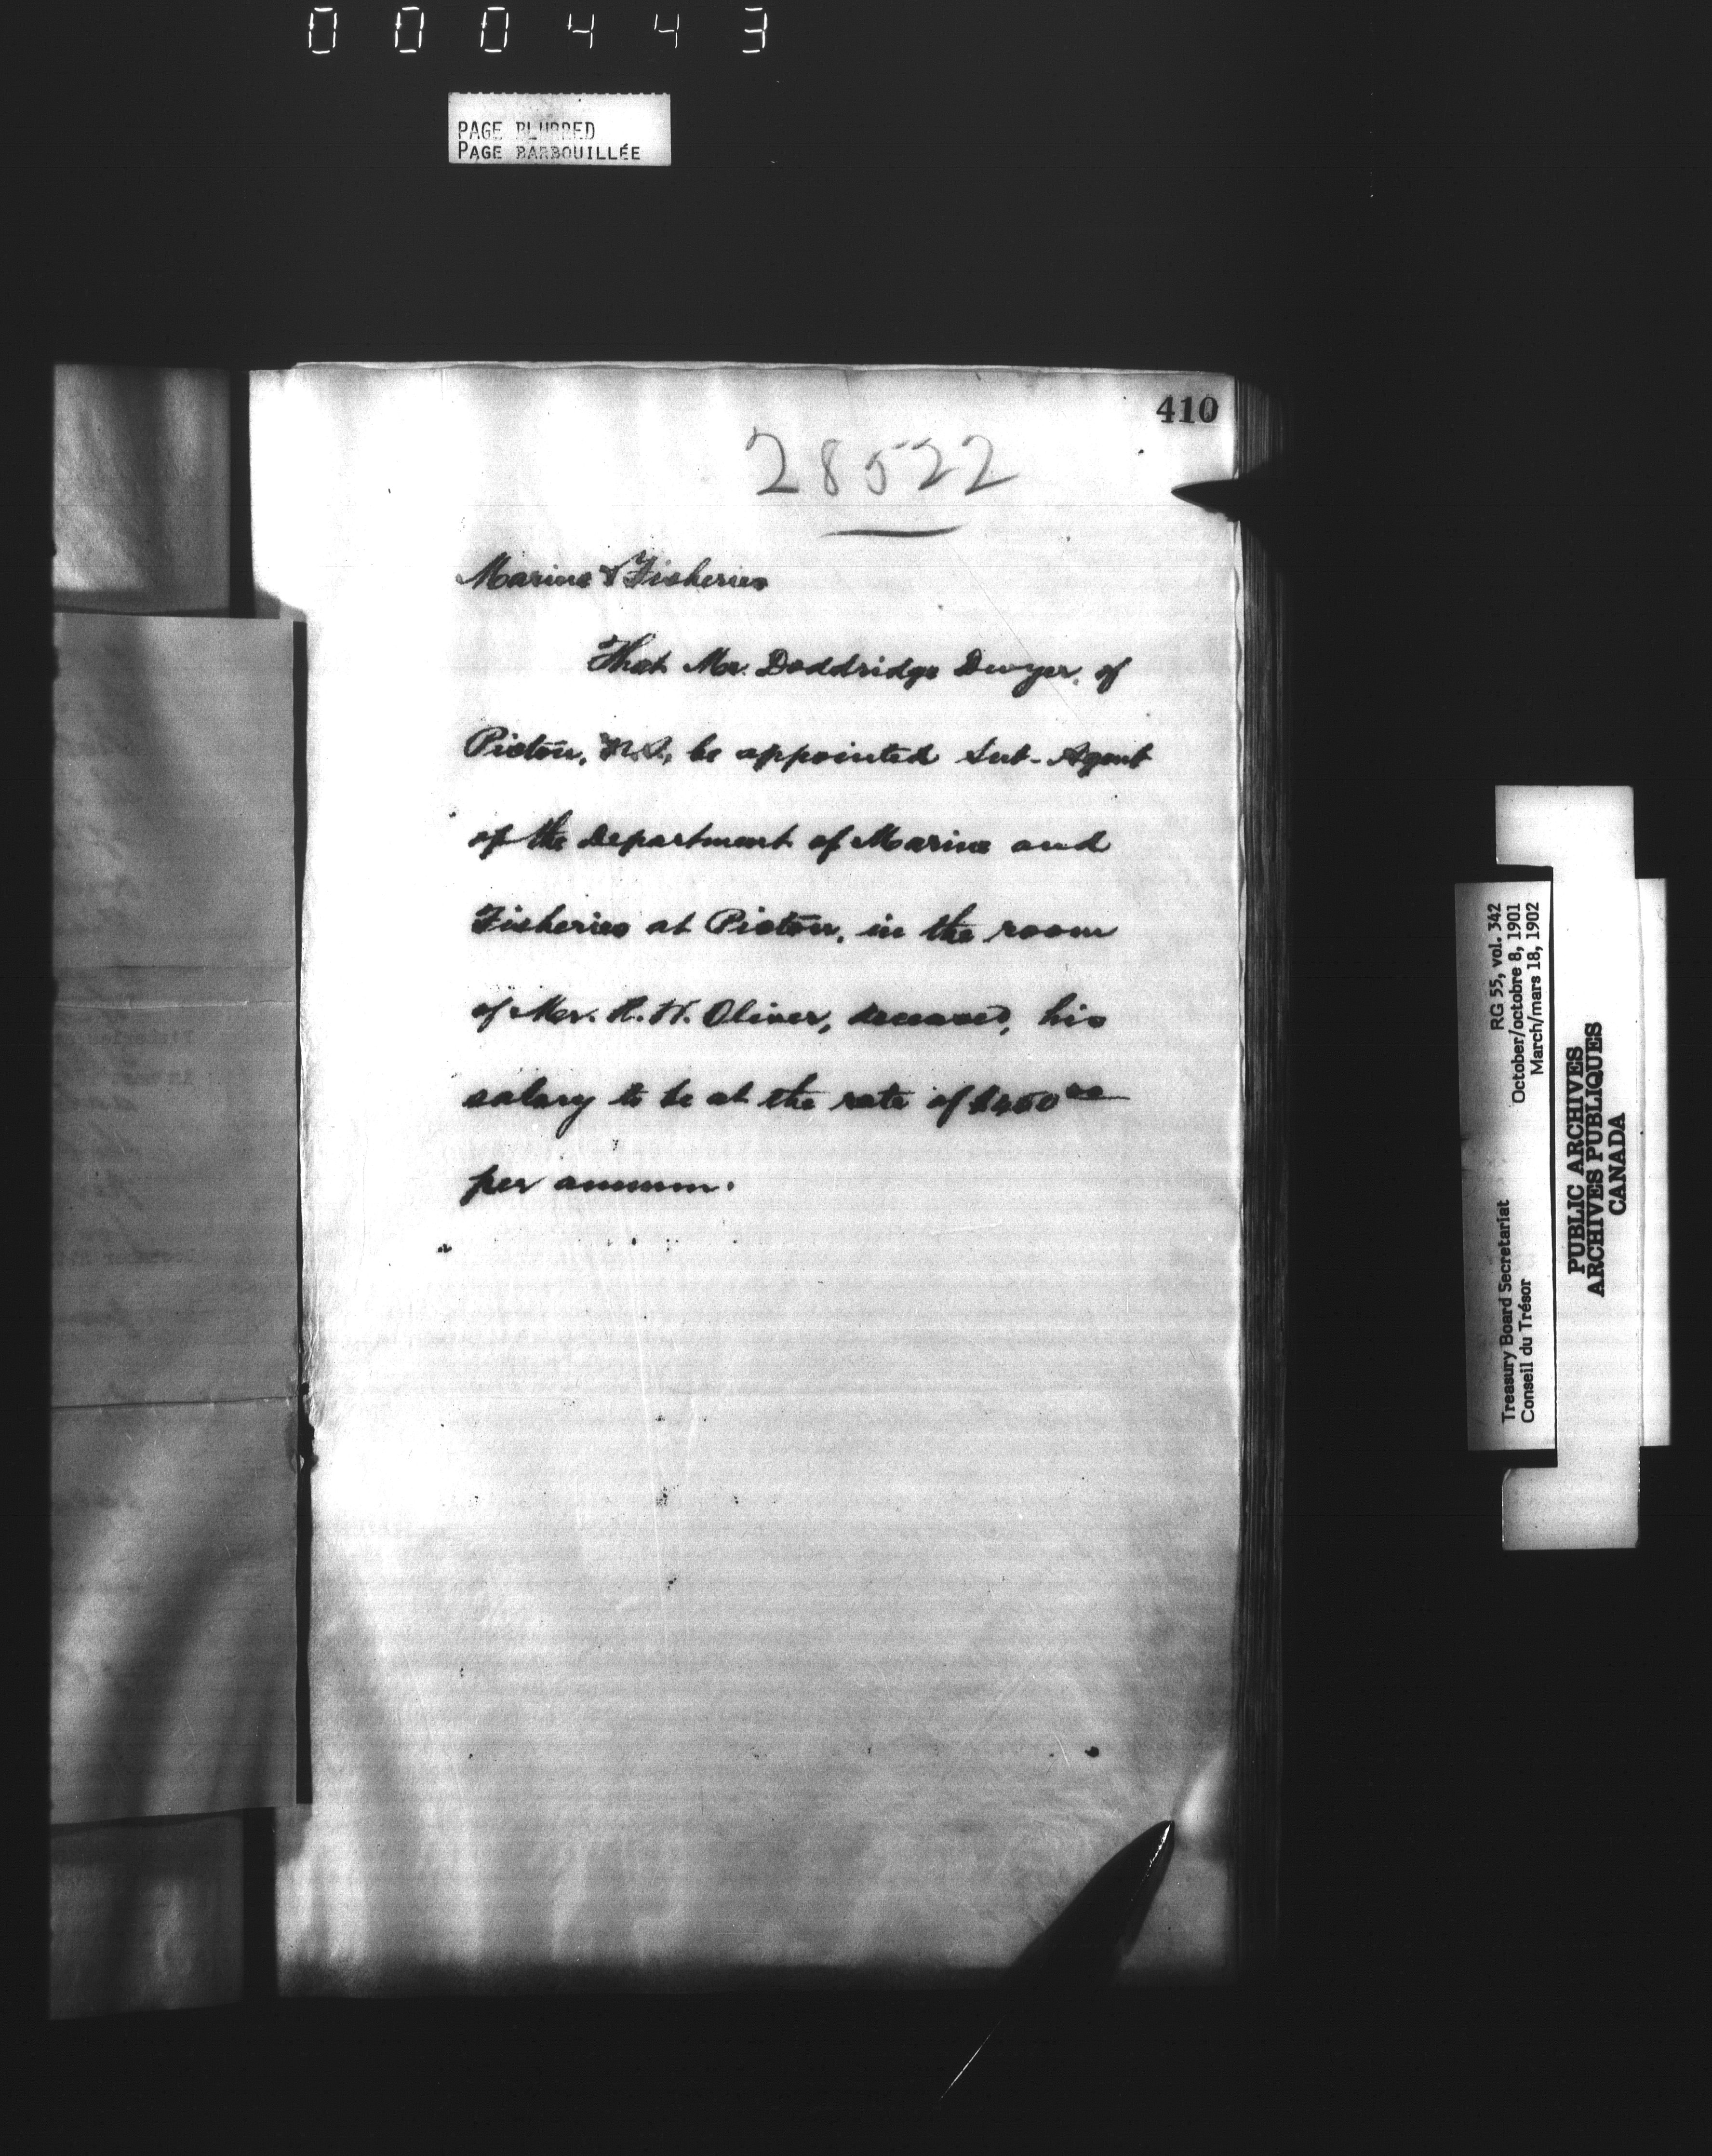 000443
PAGE BLURRED
PAGE BARBOUILLÉE
410
28522
Marine & Fisheries
That Mr. Doddridge Dwyer, of
Pictou, N.S., be appointed Sub-Agent
of the Department of Marine and
Fisheries at Pictou, in the room
of Mr. R. H. Oliver, deceased, his
salary to be at the rate of $400 00
per annum.
Treasury Board Secretariat RG 55, vol. 342
Conseil du Trésor October/octobre 8, 1901
March/mars 18, 1902
PUBLIC ARCHIVES
ARCHIVES PUBLIQUES
CANADA